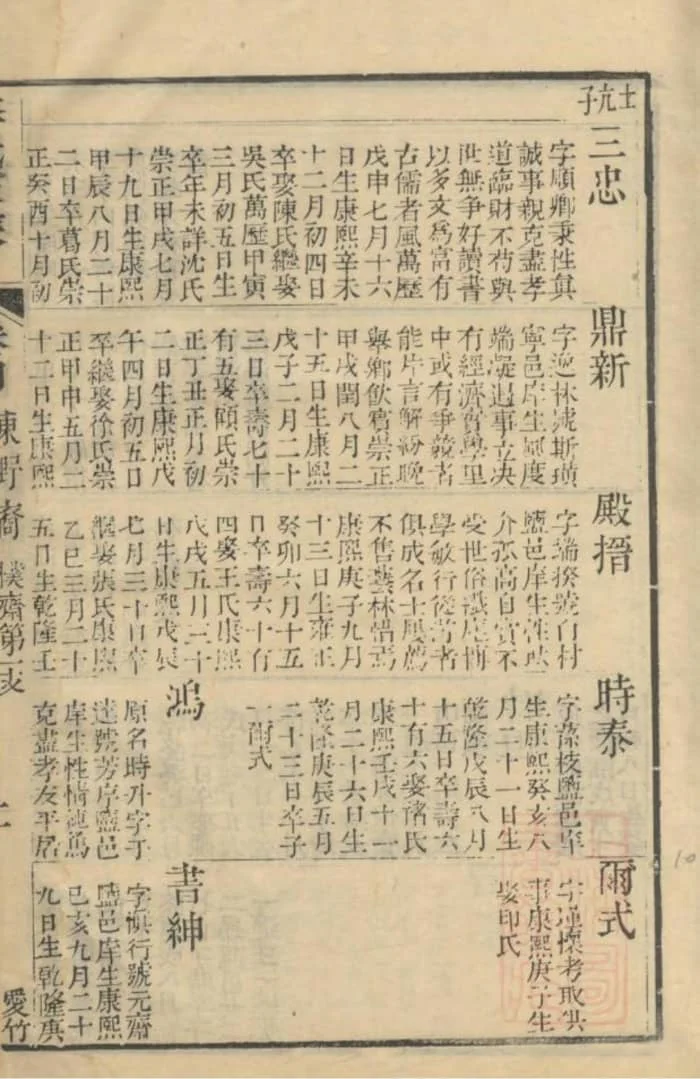 士亢子
三忠
字順卿秉性真
誠事親克盡孝
道臨財不苟與
世無爭好讀書
以多文為富有
古儒者風萬歷
戊申七月十六
日生康熙辛未
十二月初四日
卒娶陳氏繼娶
吳氏萬歷甲寅
三月初五日生
卒年未詳沈氏
崇正甲戌七月
十九日生康熙
甲辰八月二十
二日卒葛氏崇
正癸酉十月初
鼎新
字逆林號斯璜
寧邑庠生風度
端凝遇事立决
有經濟實學里
中或有爭競者
能片言解紛晚
舉鄉飲賓崇正
甲戌閏八月二
十五日生康熙
戊子二月二十
三日卒壽七十
有五娶頤氏崇
正丁丑正月初
二日生康熙戊
午四月初五日
卒繼娶徐氏崇
正甲申五月二
十二日生康熙
殿搢
字端揆號百村
鹽邑庠生性
介孤高自賞不
受世俗 博
學敏行從游者
俱成名士屢薦
不售藝林惜焉
康熙庚子九月
十三日生雍正
癸卯六月十五
日卒壽六十有
四娶王氏康熙
戊戌五月二十
日生康熙戊辰
七月三十日卒
繼娶張氏康熙
乙巳三月二十
五日生乾隆壬
時泰
字藻枝鹽邑庠
生康熙癸亥六
月二十一日生
乾隆戊辰八月
十五日卒壽六
十有六娶諸氏
康熙壬戌十一
月二十六日生
乾隆庚辰五月
二十三日卒子
一爾式
鴻
原名時升字于
逵號芳岸鹽邑
庠生性情純篤
克盡孝友平居
爾式
字漣懷考取供
事康熙庚子生
娶印氏
書紳
字慎行號元齋
鹽邑庠生康熙
己亥九月二十
九日生乾隆庚
東野裔 樸齋第一支
二
愛竹
10